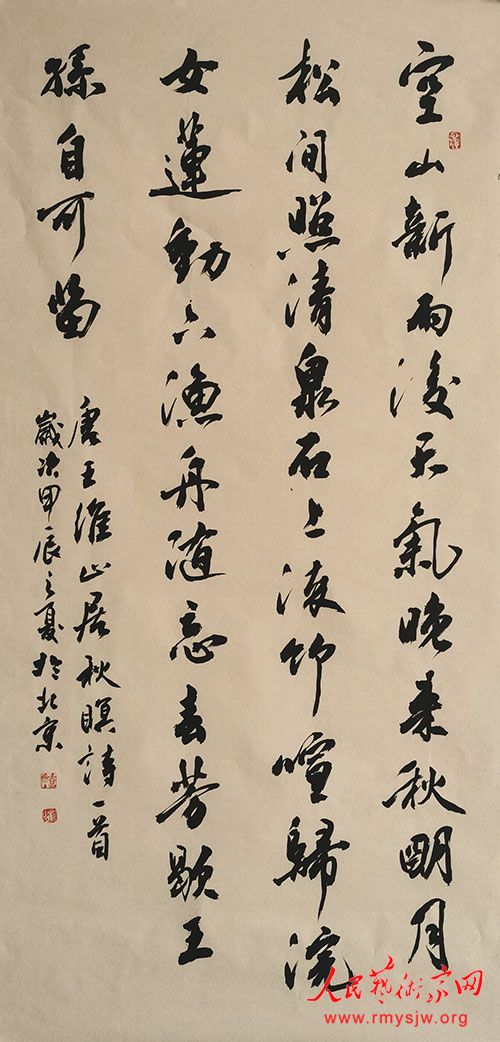 空山新雨後天氣晚来秋明月
松间照清泉石上流竹喧歸浣
女蓮動下漁舟随意春芳歇王
孫自可留
唐王維山居秋暝詩一首
歲次甲辰之夏於北京
人民藝術家网
www.rmysjw.org